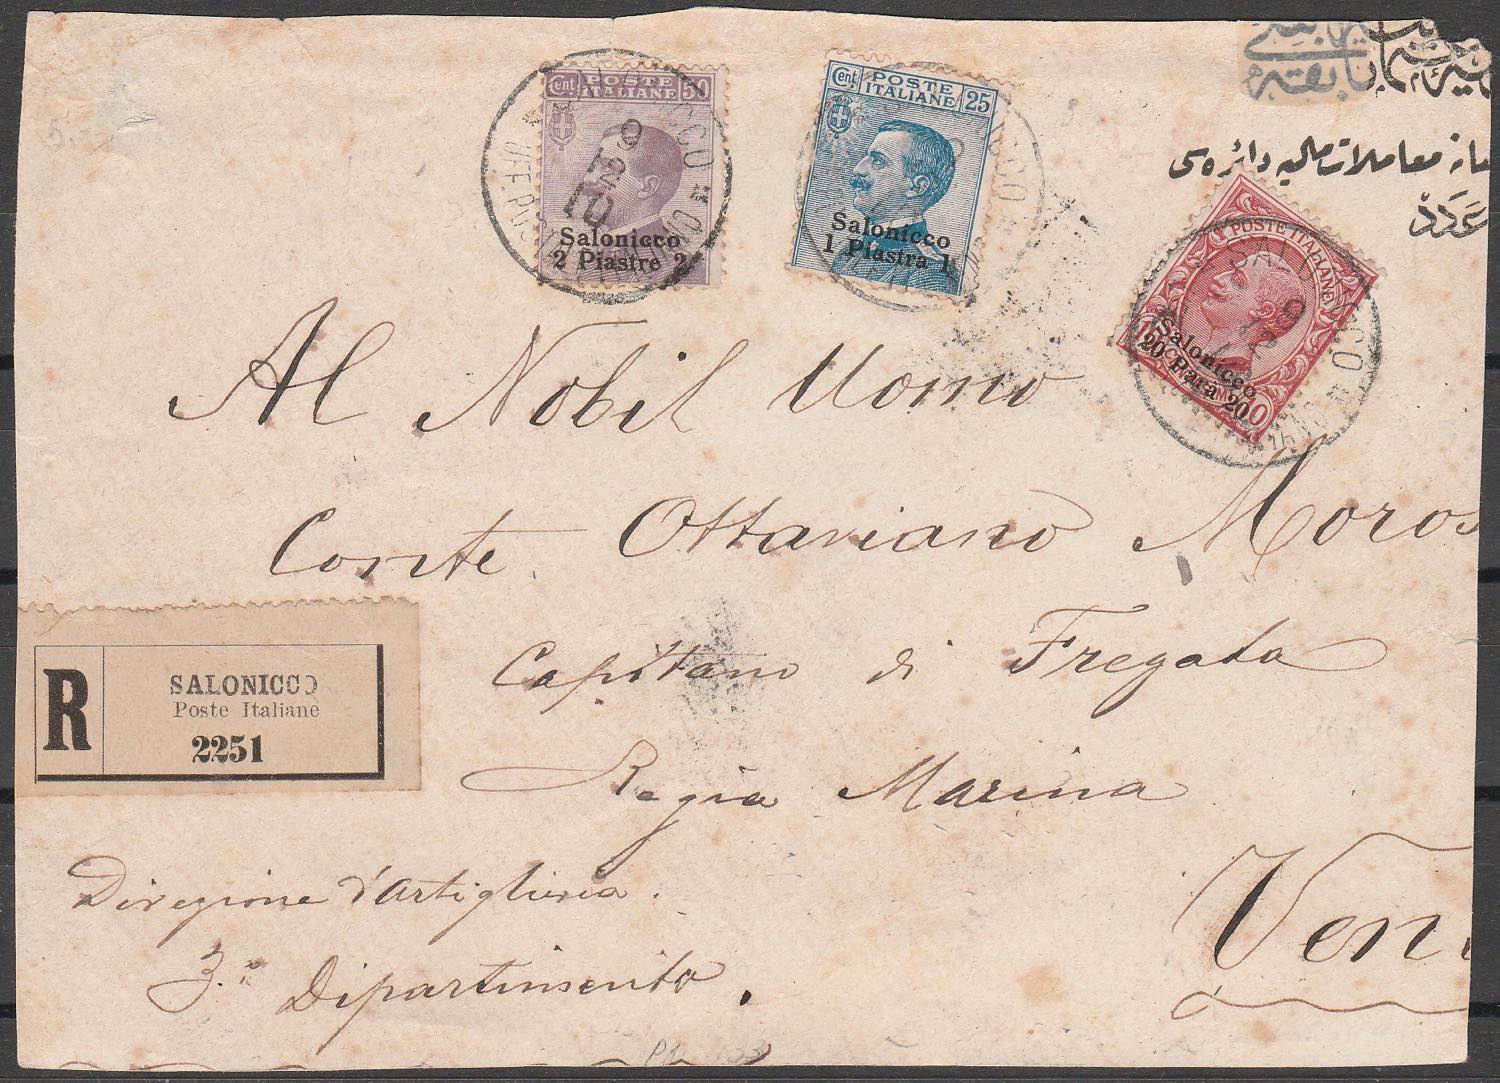 Cent. 50
POSTE
ITALIANE
Salonicco
2 Piastre 2
Cent. 25
POSTE
ITALIANE
Salonicco
1 Piastra 1
معاملات ماليه دائره‌سی
عدد
POSTE ITALIANE
Salonicco
20 Para 20
Al Nobil Uomo
Conte Ottaviano Moros
Capitano di Fregata
Regia Marina
R
SALONICCO
Poste Italiane
2251
Direzione d'Artiglieria.
3.° Dipartimento.
Ven